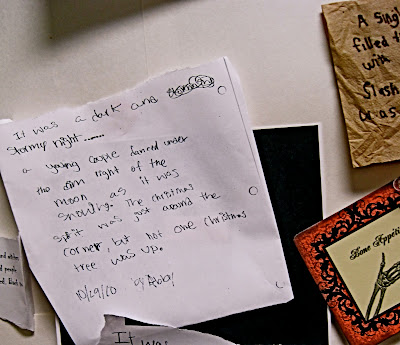 It was a dark and
Stormy night......
a young couple danced under
the dim light of the
moon as it was
snowing. The christmas
spirit was just around the
corner, but not one christmas
tree was up.
10/29/10 by Ruby
It was
A Singl
filled t
with
Slash
was
Bone Appétit